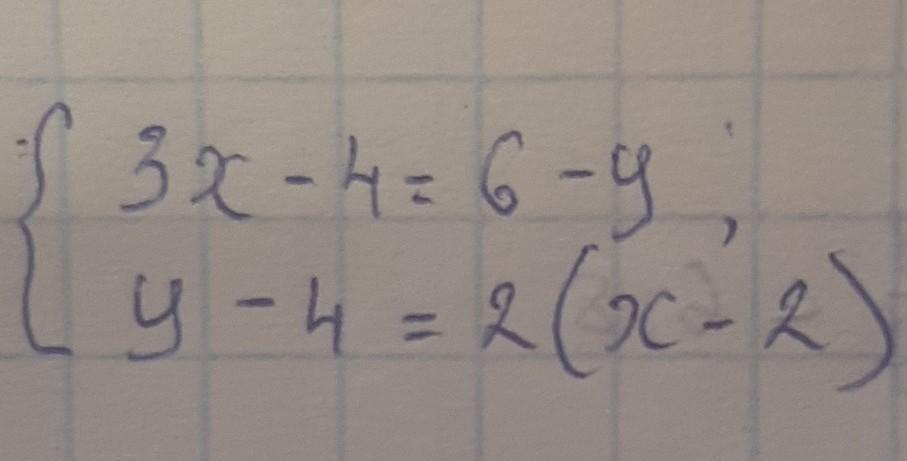 3x - 4 = 6 - y;
y - 4 = 2(x - 2)